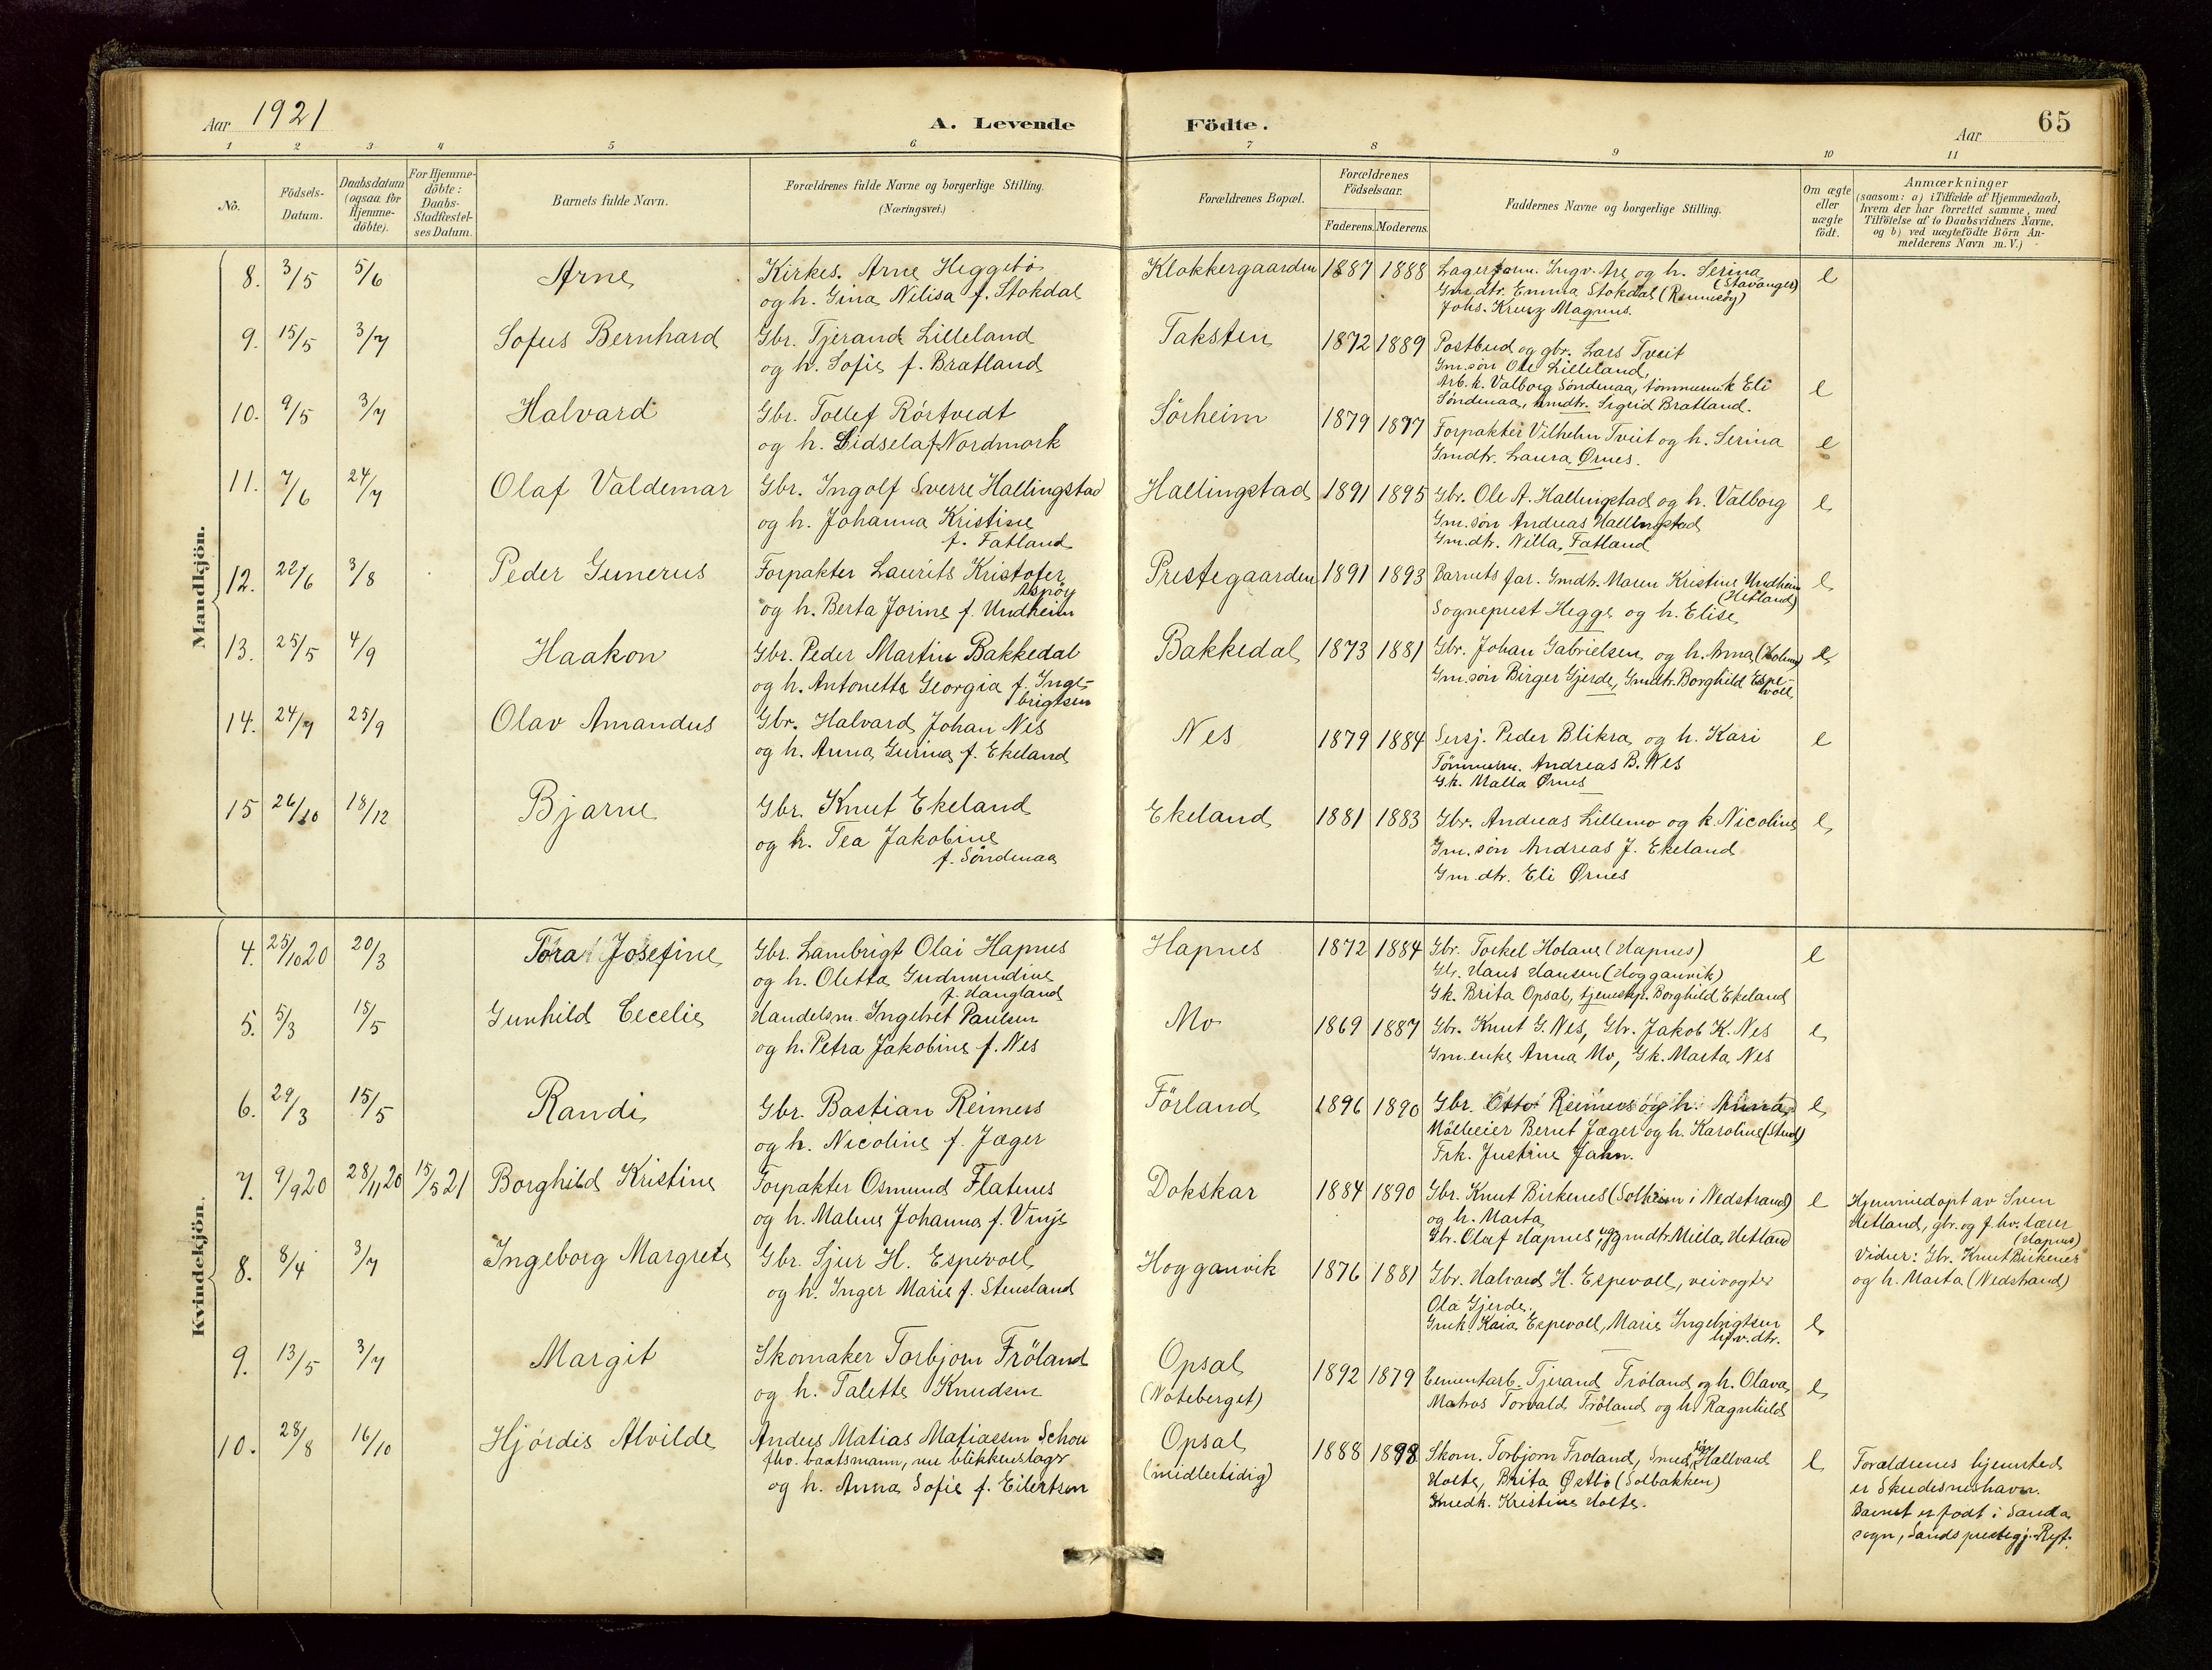 Aar 1921
A. Levende Födte.
Aar 65
1 2 3 4 5 6 7 8 9 10 11
No.
Födsels-
Datum.
Daabsdatum
(ogsaa for
Hjemme-
döbte).
For Hjemme-
döbte:
Daabs-
Stadfæstel-
ses Datum.
Barnets fulde Navn.
Forældrenes fulde Navne og borgerlige Stilling.
(Næringsvei.)
Forældrenes Bopæl.
Forældrenes
Födselsaar.
Faderens. Moderens.
Faddernes Navne og borgerlige Stilling.
Om ægte
eller
uægte
födt.
Anmærkninger
(saasom: a) i Tilfælde af Hjemmedaab,
hvem der har forrettet samme, med
Tilföielse af to Daabsvidners Navne,
og b) ved uægtefödte Börn An-
melderens Navn m. V.)
Mandkjön.
8. 3/5 5/6 Arne
Kirkes. Arne Heggebø
og h. Gina Nilisa f. Stokdal
Klokkergaarden 1887 1888
Lagerform. Ingv. Are og h. Serina
(Stavanger)
Gmdtr. Emma Stokdal (Rennesøy)
Johs. Kruez Magnus.
e
9. 15/5 3/7 Sofus Bernhard
Gbr. Tjerand Lilleland
og h. Sofie f. Bratland
Taksten 1872 1889
Postbud og gbr. Lars Tveit
Gm.søn Ole Lilleland,
Arb. k. Valborg Søndenaa, tømmermk Eli
Søndenaa, gmdtr. Sigrid Bratland.
e
10. 9/5 3/7 Halvard
Gbr. Tollef Rörtvedt
og h. Sidsela f. Nordmork
Sørheim 1879 1877
Forpakter Vilhelm Tveit og h. Serina
Gmdtr. Laura Ørnes.
e
11. 7/6 24/7 Olaf Valdemar
Gbr. Ingolf Sverre Hallingstad
og h. Johanna Kristine
f. Fatland
Hallingstad 1891 1895
Gbr. Ole A. Hallingstad og h. Valborg
Gm.søn Andreas Hallingstad
Gm.dtr. Nilla Fatland
e
12. 22/6 3/8 Peder Gunerus
Forpakter Laurits Kristofer
Aspøy
og h. Berta Jorine f. Undheim
Prestegaarden 1891 1893
Barnets far. Gmdtr. Maren Kristine Undheim
(Hetland)
Sogneprest Hegge og h. Elise
e
13. 25/5 4/9 Haakon
Gbr. Peder Martin Bakkedal
og h. Antonette Georgia f. Inge-
brigtsen
Bakkedal 1873 1881
Gbr. Johan Gabrielsen og h. Anna (Holme)
Gm.søn Birger Gjerde, Gmdtr. Borghild Espe-
voll
e
14. 24/7 25/9 Olav Amandus
Gbr. Halvard Johan Nes
og h. Anna Gurina f. Ekeland
Nes 1879 1884
Sersj. Peder Blikra og h. Kari
Tömmerm. Andreas B. Nes
G.k. Malla Ørnes
e
15 26/10 18/12 Bjarne
Gbr. Knut Ekeland
og h. Tea Jakobine
f. Søndenaa
Ekeland 1881 1883
Gbr. Andreas Lillemo og k. Nicoline
Gm.søn Andreas J. Ekeland
Gm.dtr. Eli Ørnes
e
Kvindekjön.
4. 25/10 20 20/3 Tora Josefine
Gbr. Lambrigt Olai Hapnes
og h. Oletta Gudmundine
f. Haugland
Hapnes 1872 1884
Gbr. Torkel Holane (Hapnes)
Gb. Hans Hansen (Hogganvik)
Gk. Brita Opsal, tjenestep. Borghild Ekeland
e
5. 5/3 15/5 Gunhild Cecelie
Handelsm. Ingebret Paulsen
og h. Petra Jakobine f. Nes
Mo 1869 1887
Gbr. Knut G. Nes, Gbr. Jakob K. Nes
Gm.enke Anna Mo, Gk. Marta Nes
e
6. 29/3 15/5 Randi
Gbr. Bastian Reimers
og h. Nicoline f. Jæger
Förland 1896 1890
Gbr. Otto Reimers og h. Anna
Mölleier Bernt Jæger og h. Karoline (Stud)
Frk. Justine Jahn.
e
7. 9/9 20 28/11 20 15/5 21 Borghild Kristine
Forpakter Osmund Flatenes
og h. Malene Johanna f. Vinje
Dokskar 1884 1890
Gbr. Knut Birkenes (Solheim i Nedstrand)
og h. Marta
Gbr. Olaf Hapnes og gmdtr. Milla Hetland
e
Hjemmedöpt av Sven
Hetland, gbr. og f.hv. lærer
(Hapnes)
Vidner: Gbr. Knut Birkenes
og h. Marta (Nedstrand)
8. 8/4 3/7 Ingeborg Margrete
Gbr. Sjur H. Espevoll
og h. Inger Marie f. Stensland
Hogganvik 1876 1881
Gbr. Halvard H. Espevoll, veivogter
Ola Gjerde.
Gmk. Kaia Espevoll, Marie Ingebrigtsen
lgv. dtr.
e
9. 13/5 3/7 Margit
Skomaker Torbjorn Fröland
og h. Talette Knudsen
Opsal
(Noteberget)
1892 1879
Cementarb. Tjerand Fröland og h. Olava
Matros Torvald Fröland og h. Ragnhild
e
10. 28/8 16/10 Hjördis Alvilde
Anders Matias Matiassen Schou
fhv. baatsmann, nu blikkenslager
og h. Anna Sofie f. Eilertsen
Opsal
(midlertidig)
1888 1898
Skom. Torbjorn Froland, Smed Hallvard
Holte, Brita Østbø (Solbakken)
Smedk. Kristine Holte.
e
Forældrenes hjemsted
er Skudesneshavn.
Barnet er født i Sanda
sogn, Sands prestegj. Ryf.